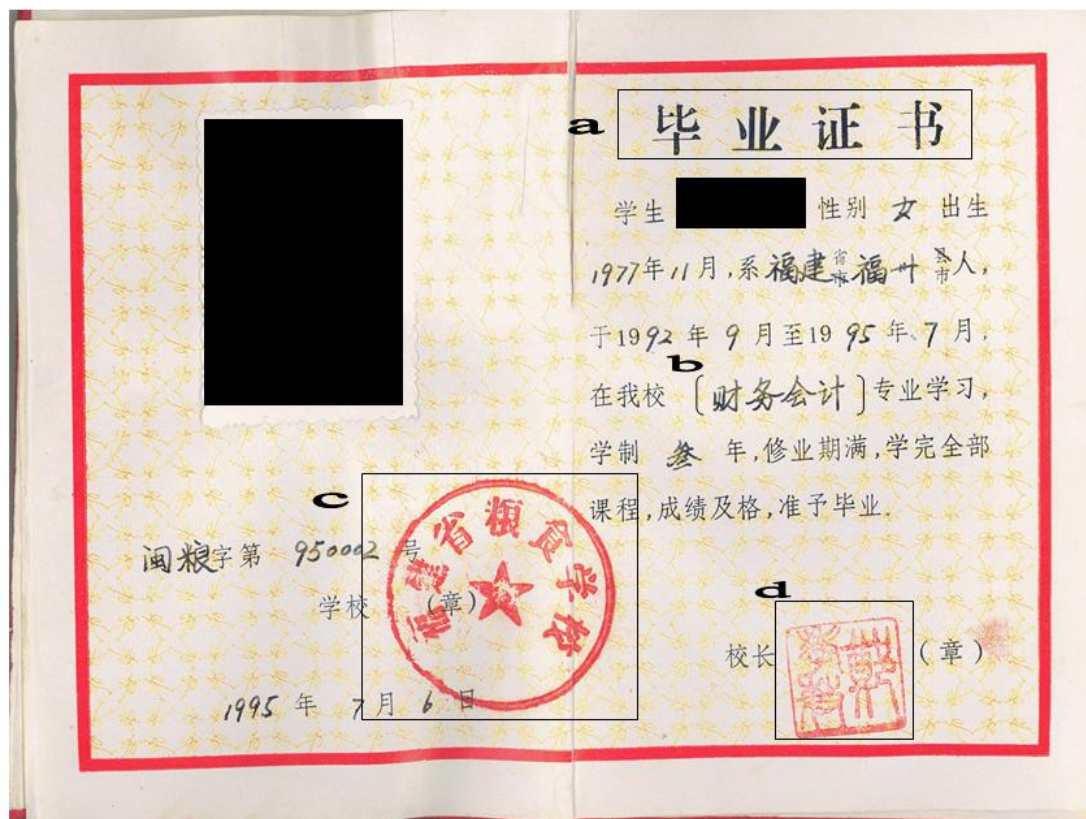 a 毕业证书
学生 性别 女 出生
1977年11月,系福建省市福州县市人,
于1992年9月至1995年7月,
b
在我校〔财务会计〕专业学习,
学制 叁 年,修业期满,学完全部
课程,成绩及格,准予毕业.
c
福建省粮食学校
闽粮字第 950002 号
学校 (章)
1995年7月6日
d
校长 (章)